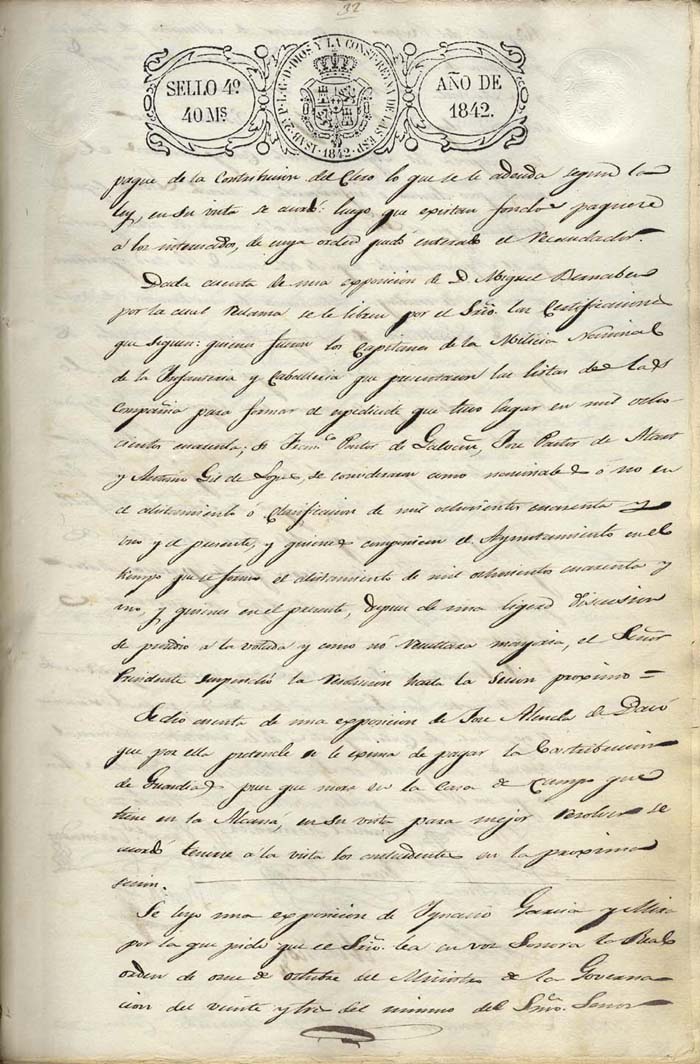 32
SELLO 4º
40 Mˢ
ISAB. 2ª P. L. G. D. DIOS Y LA CONST. REYNA DE LAS ESP.
1842
AÑO DE
1842.
pague de la Contribucion del Clero lo que se le adeuda segun la
ley, en su vista se acordó: luego que existan fondos paguese
a los interesados, de cuya orden quedó enterado el Recaudador.
Dada cuenta de una exposicion de D. Miguel Bernabeu
por la cual reclama se le libren por el Srio. las Certificaciones
que siguen: quienes fueron los Capitanes de la Milicia Nacional
de la Infanteria y Caballeria que presentaron las listas de las
Compañia para formar el espediente que tuvo lugar en mil ocho-
cientos cuarenta; si Franco. Pastor de Jose Pastor de
y Antonio Gil de Lopez, se consideraron como nacionales ó no en
el alistamiento ó Clasificacion de mil ochocientos cuarenta y
uno y el presente, y quienes componian el Ayuntamiento en el
tiempo que se formó el alistamiento de mil ochocientos cuarenta y
uno, y quienes en el presente, depues de una ligera discusion
se prosedio a la votada y como nó resultara mayoria, el Señor
Presidente suspendió la resolucion hasta la Sesion proximo =
Se dio cuenta de una exposicion de Jose de
que por ella pretende se le exima de pagar la Contribucion
de Guardias pues que mora en la Casa de Campo que
tiene en la Alcaná, en su vista para mejor resolver se
acordó tenerse á la vista los antecedentes en la proxima
sesion.
Se leyo una exposicion de Ignacio Garcia y Mira
por la que pide que el Srio. lea en voz Sonora la Real
orden de onse de octubre del Ministro de la Governa
cion del veinte y tres del mismo del Señor